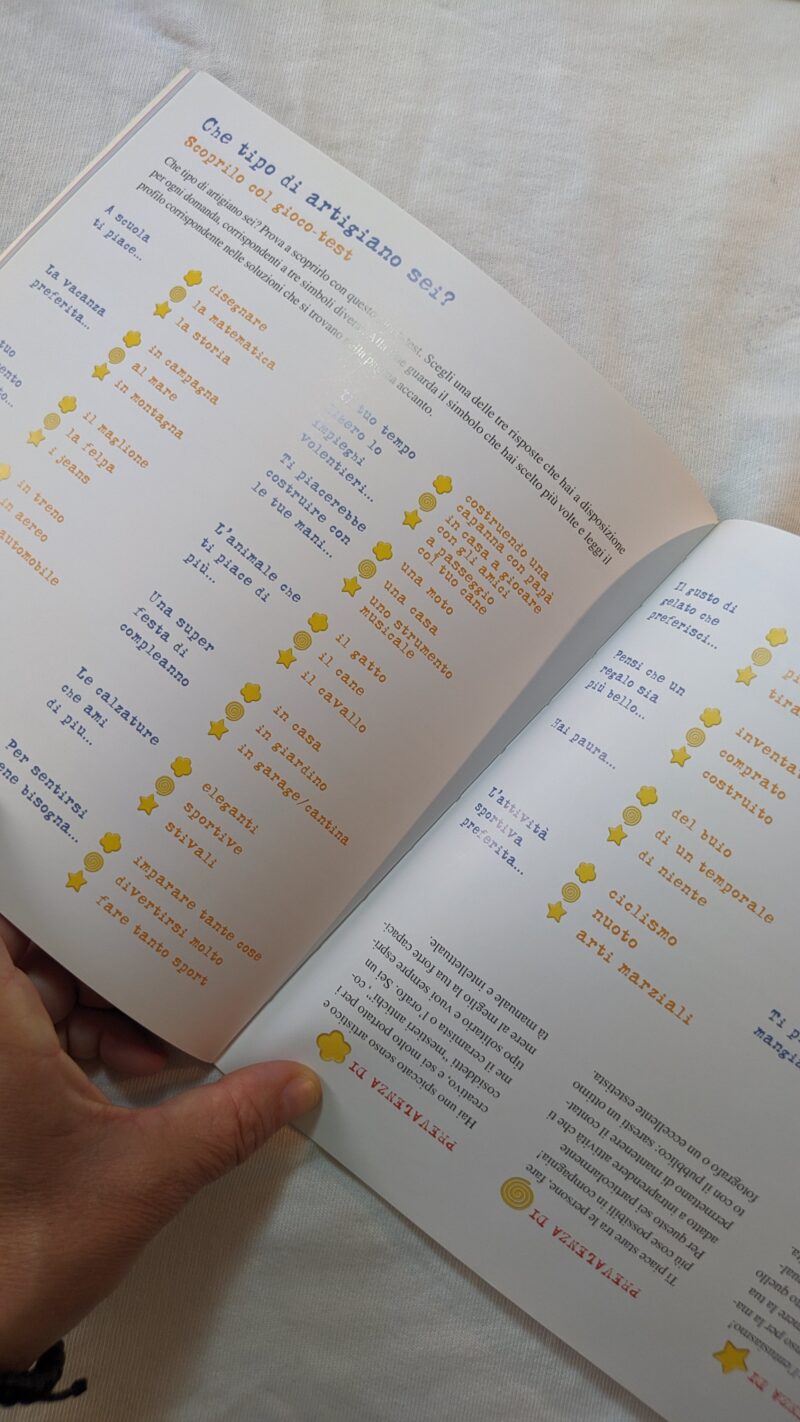 Che tipo di artigiano sei?
Scoprilo col gioco-test
Che tipo di artigiano sei? Prova a scoprirlo con questo test. Scegli una delle tre risposte che hai a disposizione
per ogni domanda, corrispondenti a tre simboli diversi. guarda il simbolo che hai scelto più volte e leggi il
profilo corrispondente nelle soluzioni che si trovano nella pagina accanto.
A scuola
ti piace...
disegnare
la matematica
la storia
La vacanza
preferita...
in campagna
al mare
in montagna
tuo
il maglione
la felpa
i jeans
in treno
in aereo
automobile
Il tuo tempo
libero lo
impieghi
volentieri...
costruendo una
capanna con papà
in casa a giocare
con gli amici
a passeggio
col tuo cane
Ti piacerebbe
costruire con
le tue mani...
una moto
una casa
uno strumento
musicale
L'animale che
ti piace di
più...
il gatto
il cane
il cavallo
Una super
festa di
compleanno
in casa
in giardino
in garage/cantina
Le calzature
che ami
di piu...
eleganti
sportive
stivali
Per sentirsi
bisogna...
imparare tante cose
divertirsi molto
fare tanto sport
Il gusto di
gelato che
preferisci...
Pensi che un
regalo sia
più bello...
comprato
costruito
Hai paura...
del buio
di un temporale
di niente
L'attività
sportiva
preferita...
ciclismo
nuoto
arti marziali
PREVALENZA DI
Hai uno spiccato senso artistico e
creativo, e sei molto portato per i
cosiddetti "mestieri antichi", co-
me il ceramista o l'orafo. Sei un
tipo solitario e vuoi sempre espri-
mere al meglio la tua forte capaci-
tà manuale e intellettuale.
PREVALENZA DI
Ti piace stare tra le persone, fare
più cose possibili in compagnia!
Per questo sei particolarmente
adatto a intraprendere attività che ti
permettano di mantenere il contat-
to con il pubblico: saresti un ottimo
fotografo o un eccellente estetista.